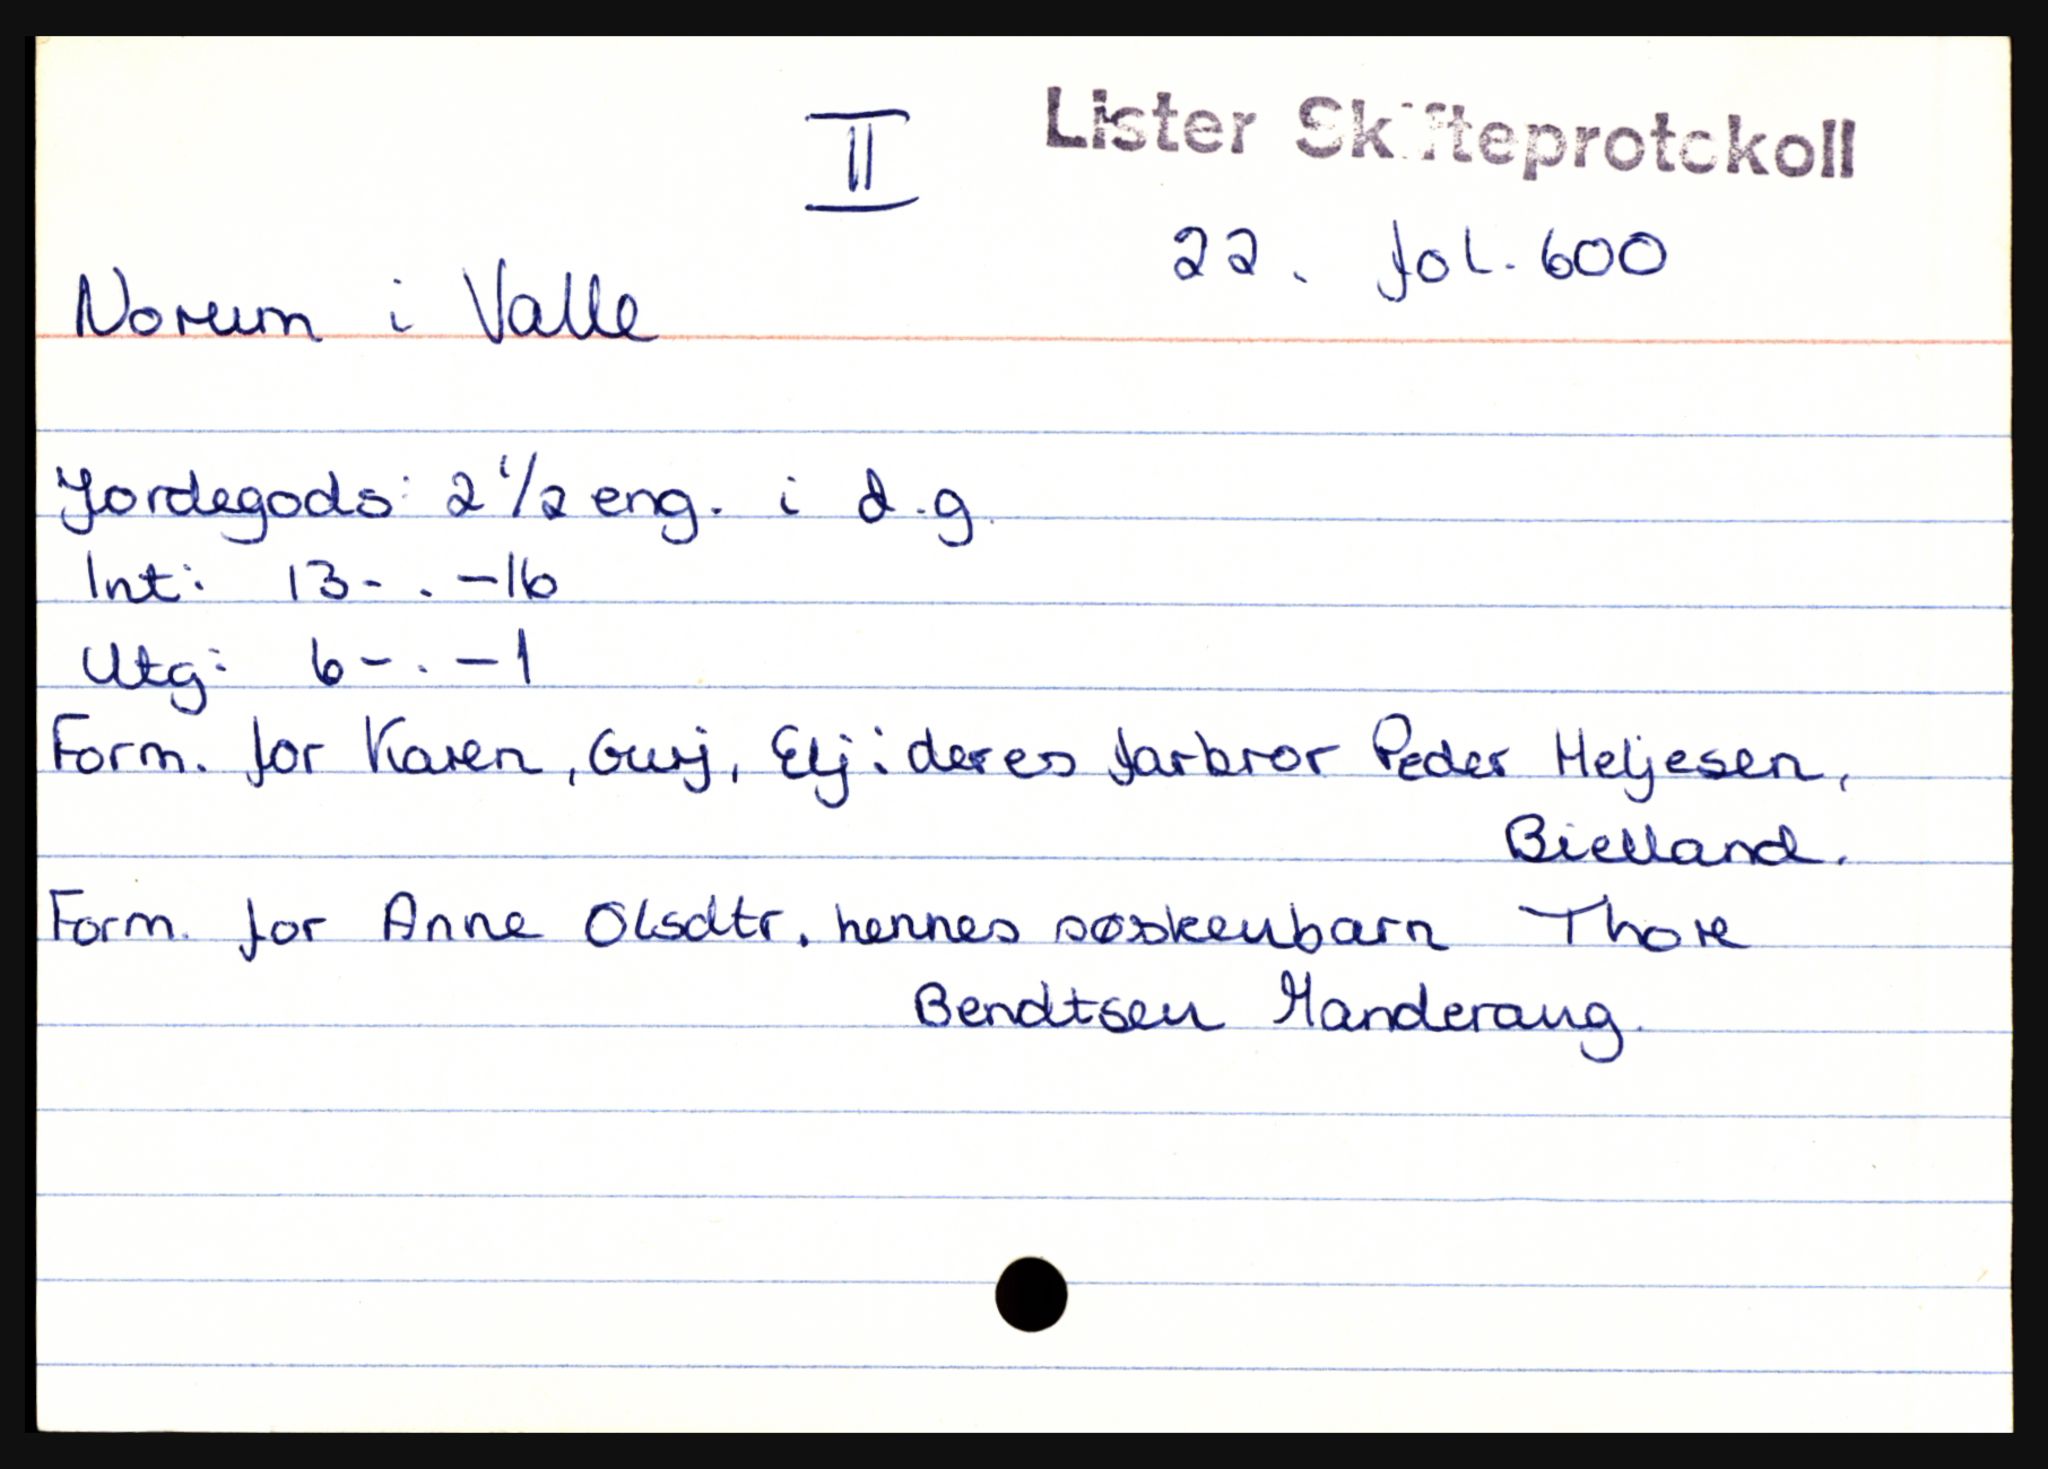 II
Lister Skifteprotokoll
22. fol. 600
Norum i Valle
Jordegods: 2 1/2 eng. i d.g.
Int: 13- . -16
Utg: 6- . -1
Form. for Karen, Gurj, Elj: deres farbror Peder Heljesen,
Bielland.
Form. for Anne Olsdtr. hennes søskenbarn Thore
Bendtsen Handeraug.